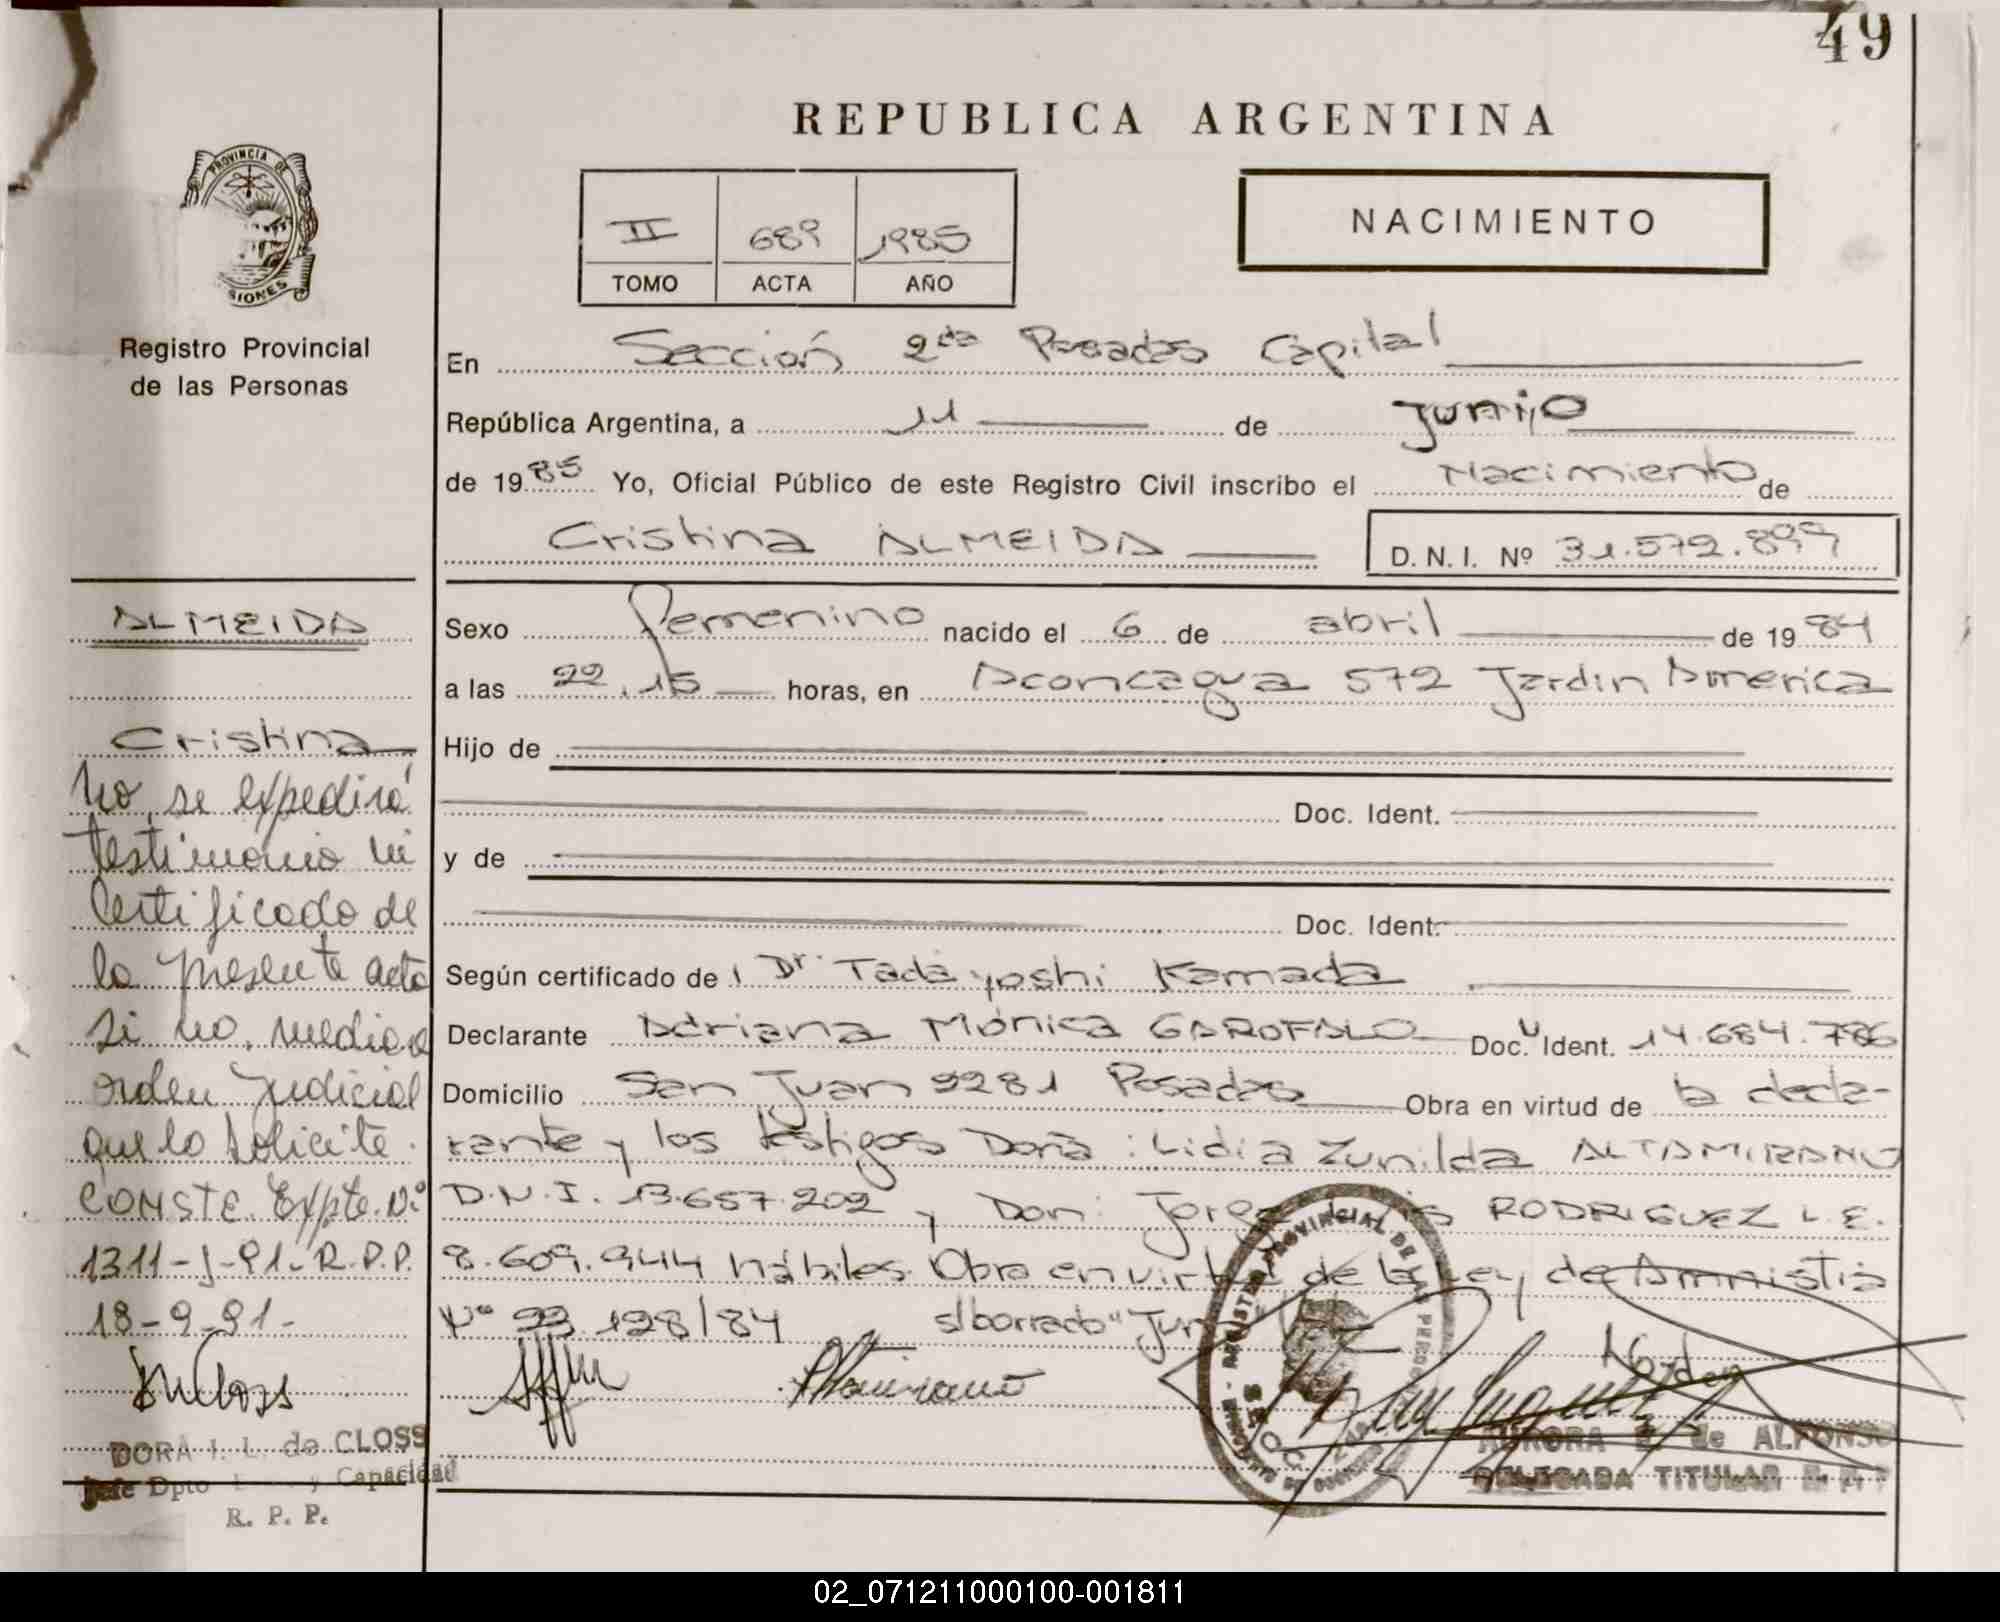 49
REPUBLICA ARGENTINA
PROVINCIA DE
SIONES
Registro Provincial
de las Personas
II 689 1985
TOMO ACTA AÑO
NACIMIENTO
En Sección 2da Posadas Capital
República Argentina, a 11 de Junio
de 1985 Yo, Oficial Público de este Registro Civil inscribo el Nacimiento de
Cristina ALMEIDA D. N. I. Nº 31.572.899
Sexo Femenino nacido el 6 de abril de 1984
a las 22,15 horas, en Aconcagua 572 Jardin America
Hijo de
Doc. Ident.
y de
Doc. Ident.
Según certificado de Dr. Tada yoshi Kamada
Declarante Adriana Mónica GAROFALO Doc. Ident. 14.684.786
Domicilio San Juan 2281 Posadas Obra en virtud de la decla-
rante y los testigos Doña: Lidia Zunilda ALTAMIRANO
D.N.I. 13.657.202 y Don: Jorge Luis RODRIGUEZ L.E.
8.609.944 hábiles. Obra en virtud de la Ley de Amnistia
Nº 23.128/84 s/borrado "Jun
AURORA E de ALFONSO
DELEGADA TITULAR
ALMEIDA
Cristina
No se expedirá
testimonio ni
Certificado de
la presente acta
si no, media
orden Judicial
que lo solicite.
CONSTE. Expte. Nº
1311-J-91-R.P.P.
18-9-91-
DORA I. L. de CLOSS
Jefe Dpto y Capacidad
R. P. P.
02_071211000100-001811